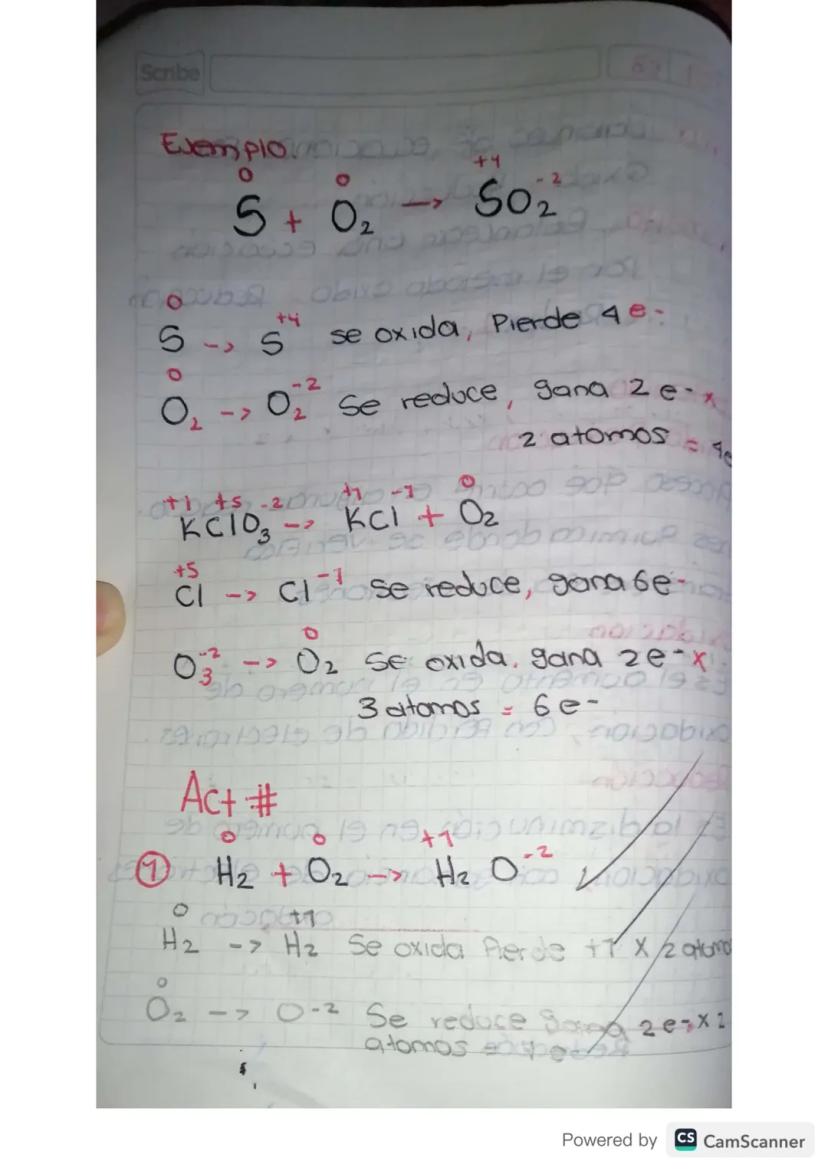 Scribe
Ejemplo.
0 0 +4 -2
S + O2 -> SO2
0
S -> S+4 se oxida, Pierde 4 e-
0
O2 -> O2-2 Se reduce, gana 2 e- x
2 atomos = 4e
+1 +5 -2 +1 -1 0
KClO3 -> KCl + O2
+5
Cl -> Cl-1 se reduce, gana 6e-
0
O3-2 -> O2 Se oxida. gana 2e- x
3 atomos = 6e-
Act #
0 0 +1
1 H2 + O2 -> H2 O-2
0 +1
H2 -> H2 Se oxida Pierde +1 x 2 atomo
0
O2 -> O-2 Se reduce gana 2e- x 2
atomos
Powered by CS CamScanner